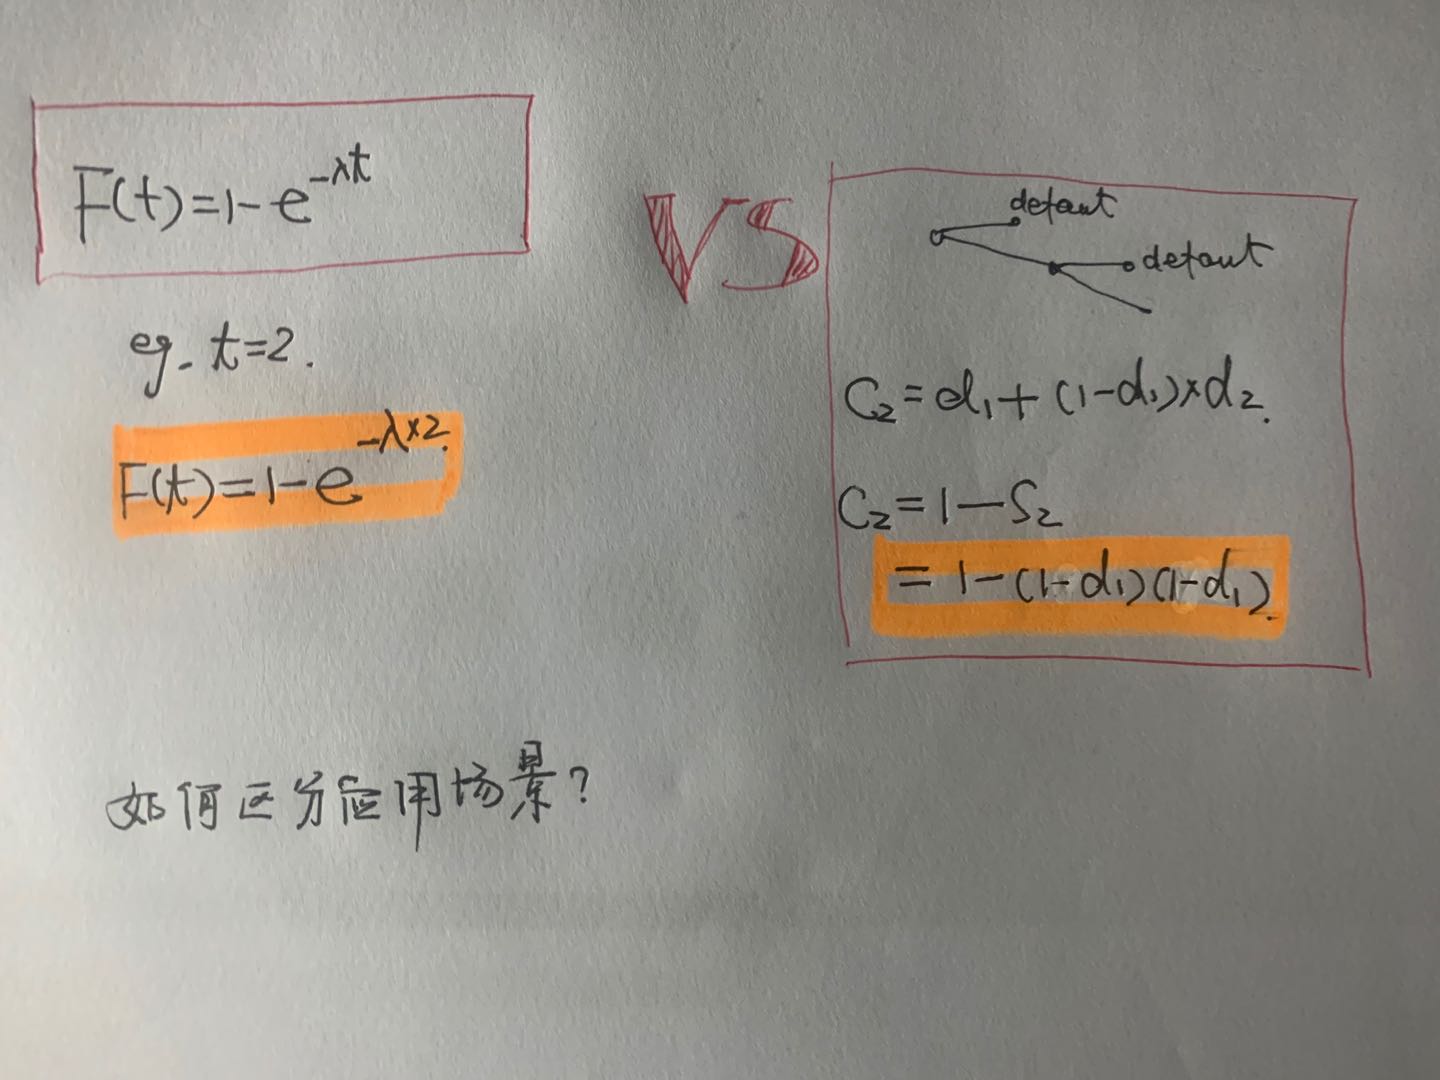 F(t)=1-e^{-λt}
eg. t=2.
F(t)=1-e^{-λ×2.}
VS
defaut
defaut
C₂=d₁+(1-d₁)×d₂.
C₂=1-S₂
=1-(1-d₁)(1-d₁).
如何区分应用场景?